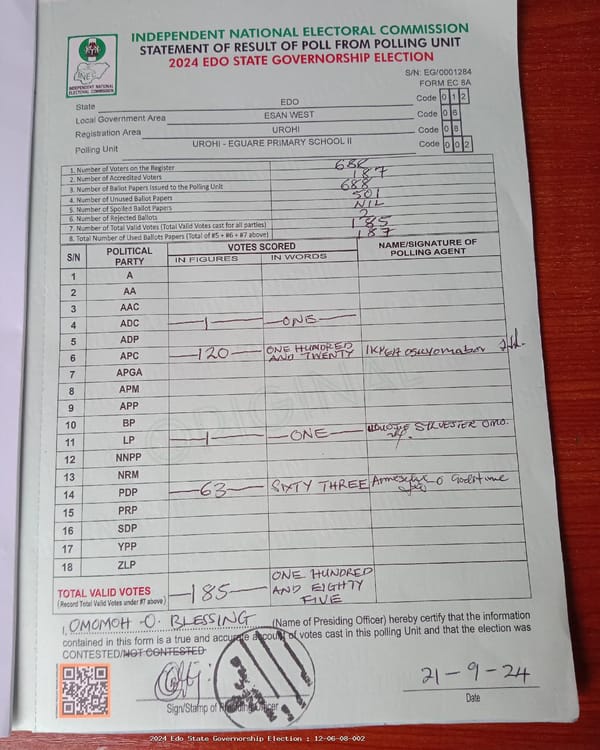 INDEPENDENT NATIONAL ELECTORAL COMMISSION
STATEMENT OF RESULT OF POLL FROM POLLING UNIT
2024 EDO STATE GOVERNORSHIP ELECTION
INEC
INDEPENDENT NATIONAL ELECTORAL COMMISSION
S/N: EG/0001284
FORM EC 8A
State EDO Code 012
Local Government Area ESAN WEST Code 06
Registration Area UROHI Code 08
Polling Unit UROHI - EGUARE PRIMARY SCHOOL II Code 002
1. Number of Voters on the Register 688
2. Number of Accredited Voters 187
3. Number of Ballot Papers Issued to the Polling Unit 688
4. Number of Unused Ballot Papers 501
5. Number of Spoiled Ballot Papers NIL
6. Number of Rejected Ballots 2
7. Number of Total Valid Votes (Total Valid Votes cast for all parties) 185
8. Total Number of Used Ballots Papers (Total of #5 + #6 + #7 above) 187
S/N POLITICAL PARTY VOTES SCORED NAME/SIGNATURE OF POLLING AGENT
IN FIGURES IN WORDS
1 A
2 AA
3 AAC
4 ADC 1 ONE
5 ADP
6 APC 120 ONE HUNDRED AND TWENTY
7 APGA
8 APM
9 APP
10 BP
11 LP 1 ONE SILVESTER OMO.
12 NNPP
13 NRM
14 PDP 63 SIXTY THREE O Godstime
15 PRP
16 SDP
17 YPP
18 ZLP
TOTAL VALID VOTES 185 ONE HUNDRED AND EIGHTY FIVE
(Record Total Valid Votes under #7 above)
I, OMOMOH -O. BLESSING (Name of Presiding Officer) hereby certify that the information
contained in this form is a true and accurate account of votes cast in this polling Unit and that the election was
CONTESTED/NOT CONTESTED
21-9-24
Sign/Stamp of Presiding Officer Date
2024 Edo State Governorship Election : 12-06-08-002